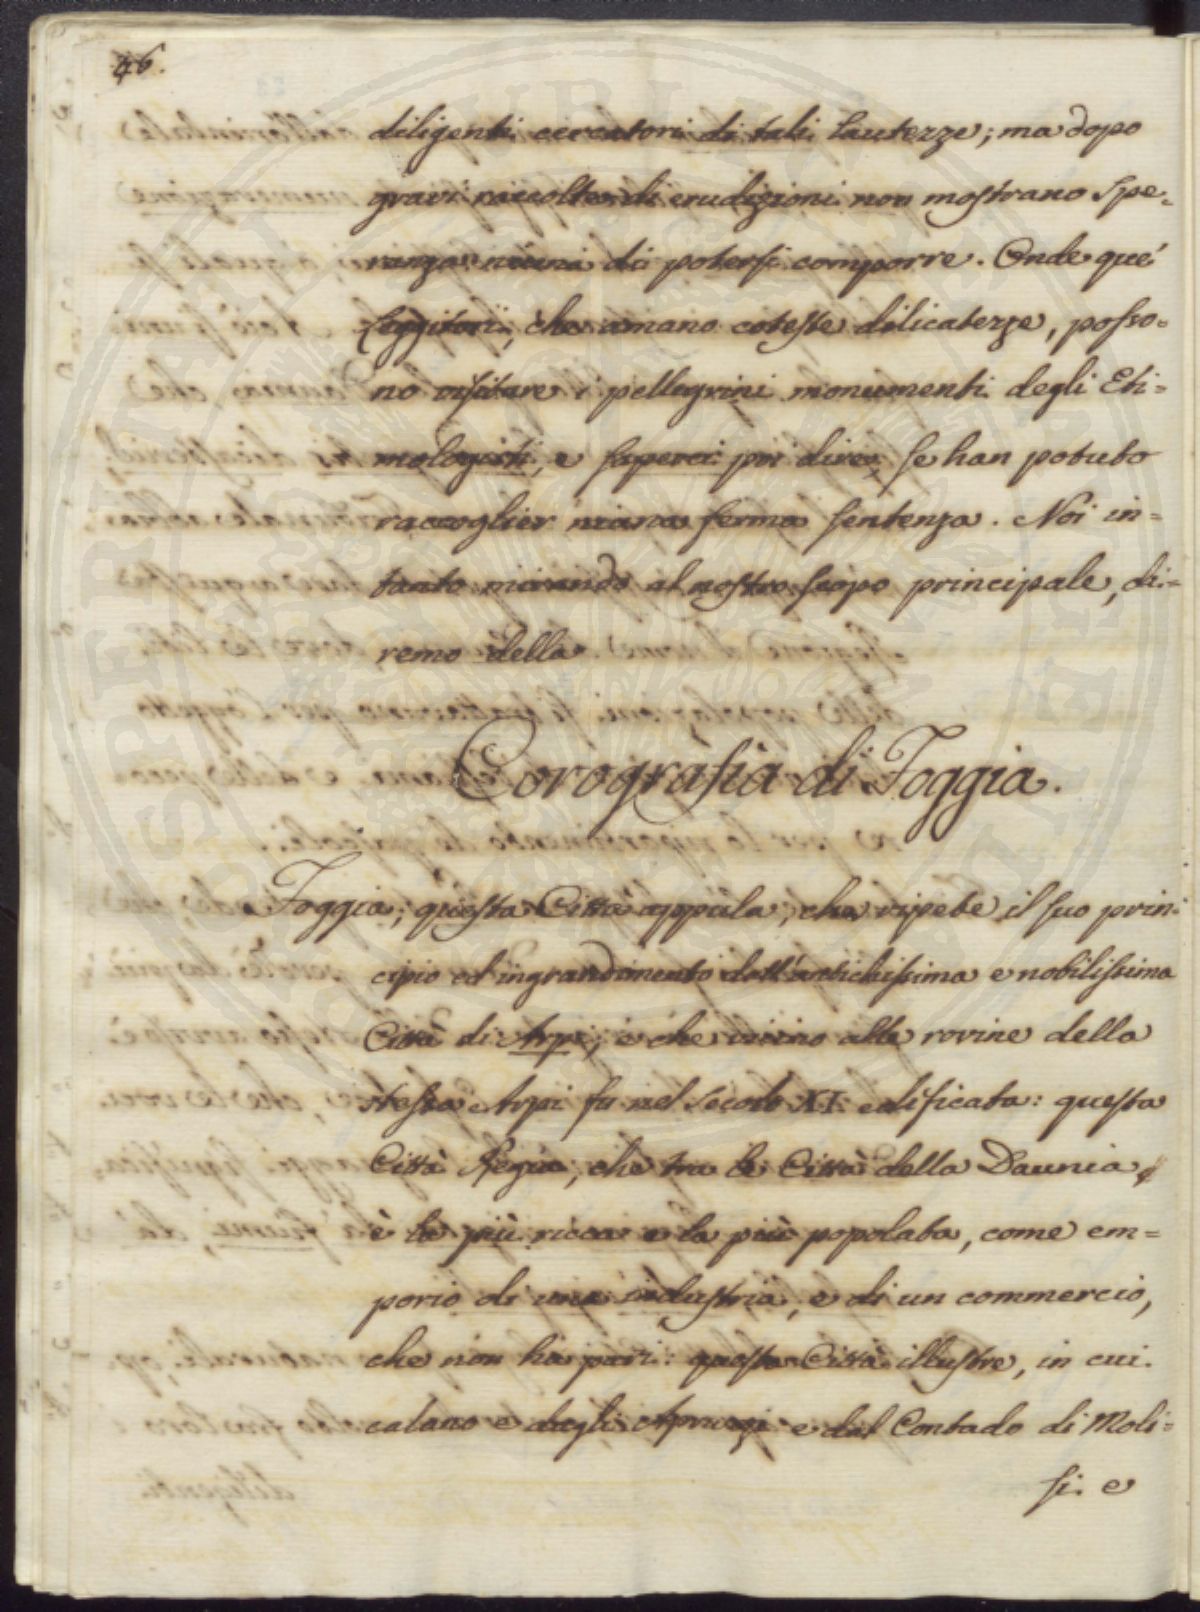 46.
diligenti cercatori di tali lautezze; ma dopo
gravi raccolte di erudizioni non mostrano spe=
ranza niuna di potersi comporre. Onde que'
Leggitori, che amano coteste dilicatezze, posso=
no visitare i pellegrini monumenti degli Eti=
mologisti, e saperci poi dire, se han potuto
raccoglier niuna ferma sentenza. Noi in=
tanto mirando al nostro scopo principale, di=
remo della
Corografia di Foggia.
Foggia; questa Città appula, che ripete il suo prin=
cipio ed ingrandimento dall'antichissima e nobilissima
Città di Arpi, e che vicino alle rovine della
stessa Arpi fu nel secolo XI. edificata: questa
Città Regia, che tra le Città della Daunia,
è la più ricca e la più popolata, come em=
porio di una industria, e di un commercio,
che non ha pari: questa Città illustre, in cui
calano e dagli Apruzzi e dal Contado di Moli=
si e